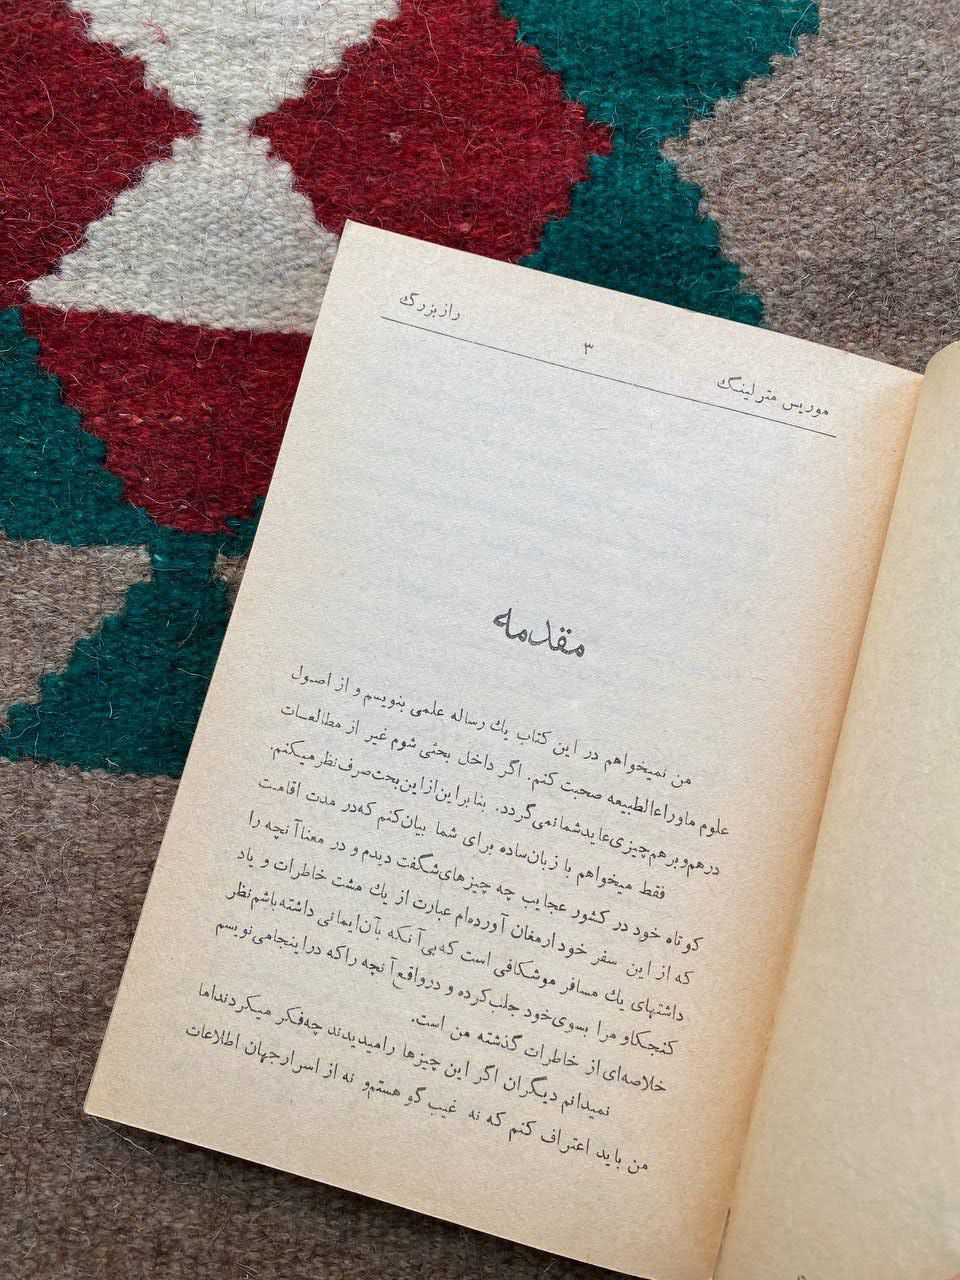 موریس مترلینگ
۳
راز بزرگ
مقدمه
من نمیخواهم در این کتاب یك رساله علمی بنویسم و از اصول
علوم ماوراءالطبیعه صحبت کنم. اگر داخل بحثی شوم غیر از مطالعات
درهم‌وبرهم‌چیزی‌عاید شما نمی‌گردد. بنابراین‌از این‌بحث صرف‌نظر میکنم.
فقط میخواهم با زبان‌ساده برای شما بیان‌کنم که‌در مدت اقامت
کوتاه خود در کشور عجایب چه چیزهای‌شگفت دیدم و در معنا آنچه را
که از این سفر خود ارمغان آورده‌ام عبارت از یك مشت خاطرات و یاد
داشتهای یك مسافر موشکافی است که‌بی‌آنکه بآن‌ایمانی داشته‌باشم‌نظر
کنجکاو مرا بسوی‌خود جلب‌کرده و درواقع آنچه راکه دراینجامی‌نویسم
خلاصه‌ای از خاطرات گذشته من است.
نمیدانم دیگران اگر این چیزها رامیدیدند چه‌فکر میکردنداما
من باید اعتراف کنم که نه غیب گو هستم‌و نه از اسرارجهان اطلاعات